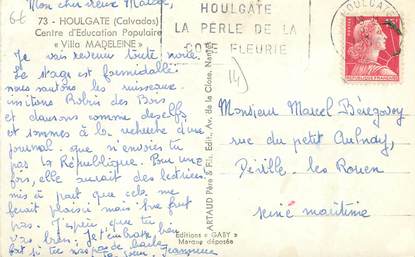 Mon cher vieux
73 - HOULGATE (Calvados)
Centre d'Education Populaire
« Villa MADELEINE »
Je vais revenir toute noire.
Le stage est formidable
nous sautons les ruisseaux
imitons Robin des Bois
et dansons comme des elfs
et sommes à la recherche d'un
journal. que n'envies tu
pas la République. Pour une
fois, elle aurait des lectrices.
mis à part que cela me
ferait plaisir
pas. J'espère que tu
vas bien. Je t'embrasse bien
fort si tu n'as pas de barbe
ta soeur. Jeannine
HOULGATE
LA PERLE DE LA
COTE FLEURIE
14)
HOULGATE
REPUBLIQUE FRANÇAISE
ARTAUD Père & Fils, Edit., Av. de la Close, Nantes
Editions « GABY »
Marque déposée
Monsieur Marcel Bérégovoy
rue du petit Aulnay,
Déville. les Rouen
seine maritime